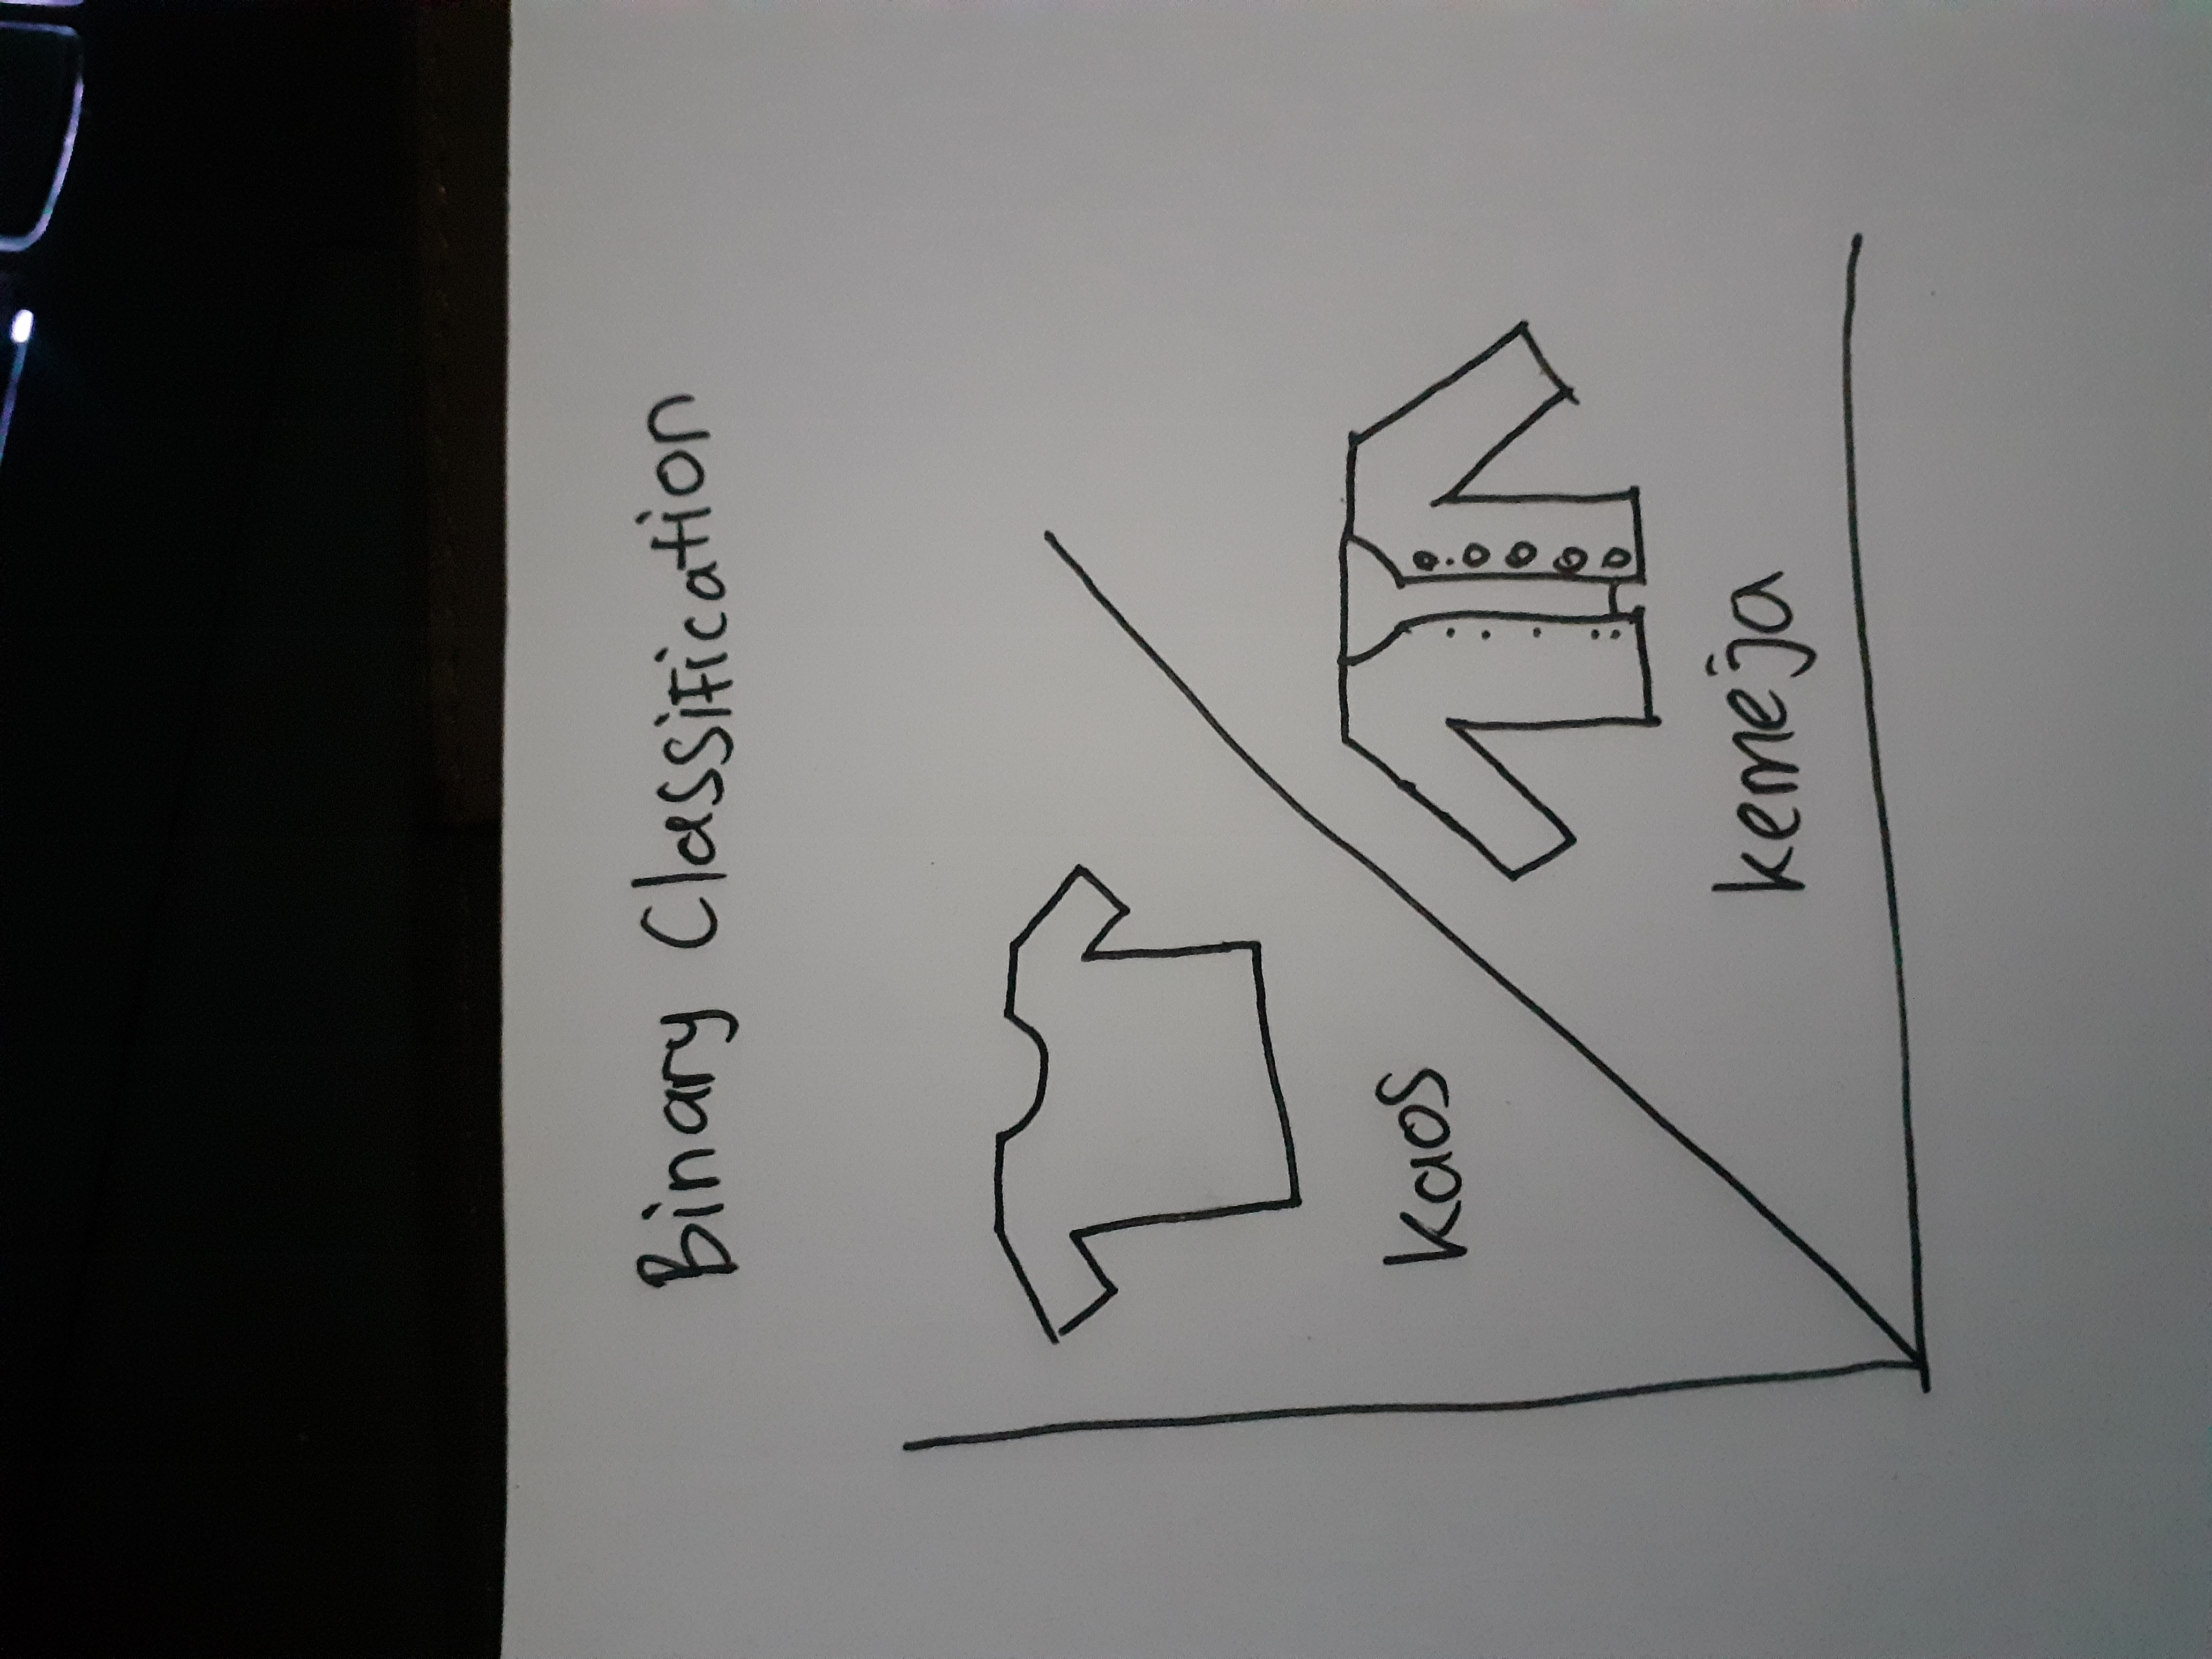 Binary Classification
kaos
kemeja